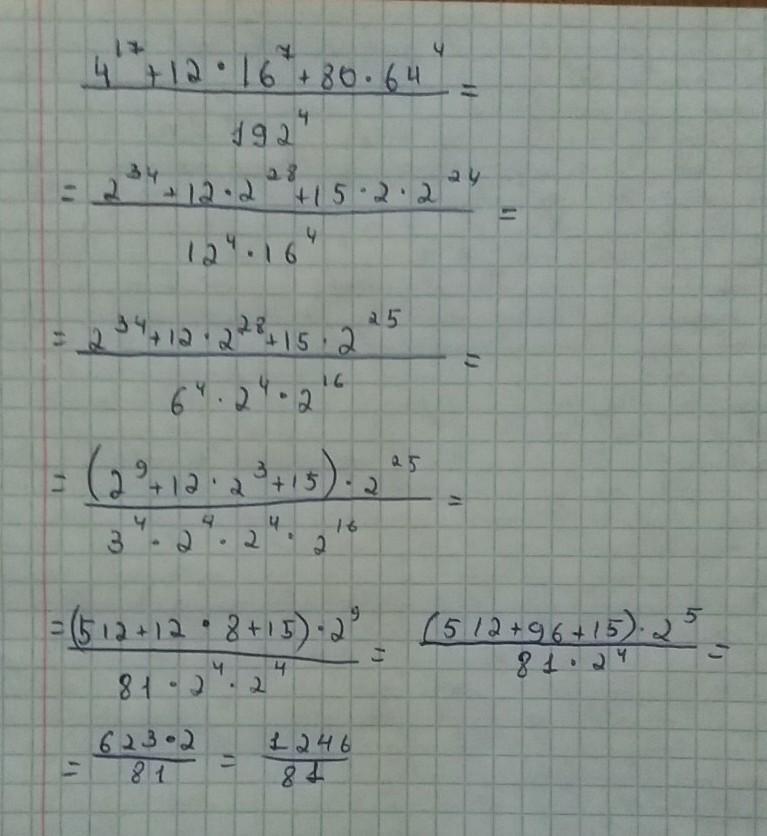 (4^17 + 12 · 16^7 + 80 · 64^4) / 192^4 =
= (2^34 + 12 · 2^28 + 15 · 2 · 2^24) / (12^4 · 16^4) =
= (2^34 + 12 · 2^28 + 15 · 2^25) / (6^4 · 2^4 · 2^16) =
= ((2^9 + 12 · 2^3 + 15) · 2^25) / (3^4 · 2^4 · 2^4 · 2^16) =
= ((512 + 12 · 8 + 15) · 2^9) / (81 · 2^4 · 2^4) = ((512 + 96 + 15) · 2^5) / (81 · 2^4) =
= (623 · 2) / 81 = 1246 / 81